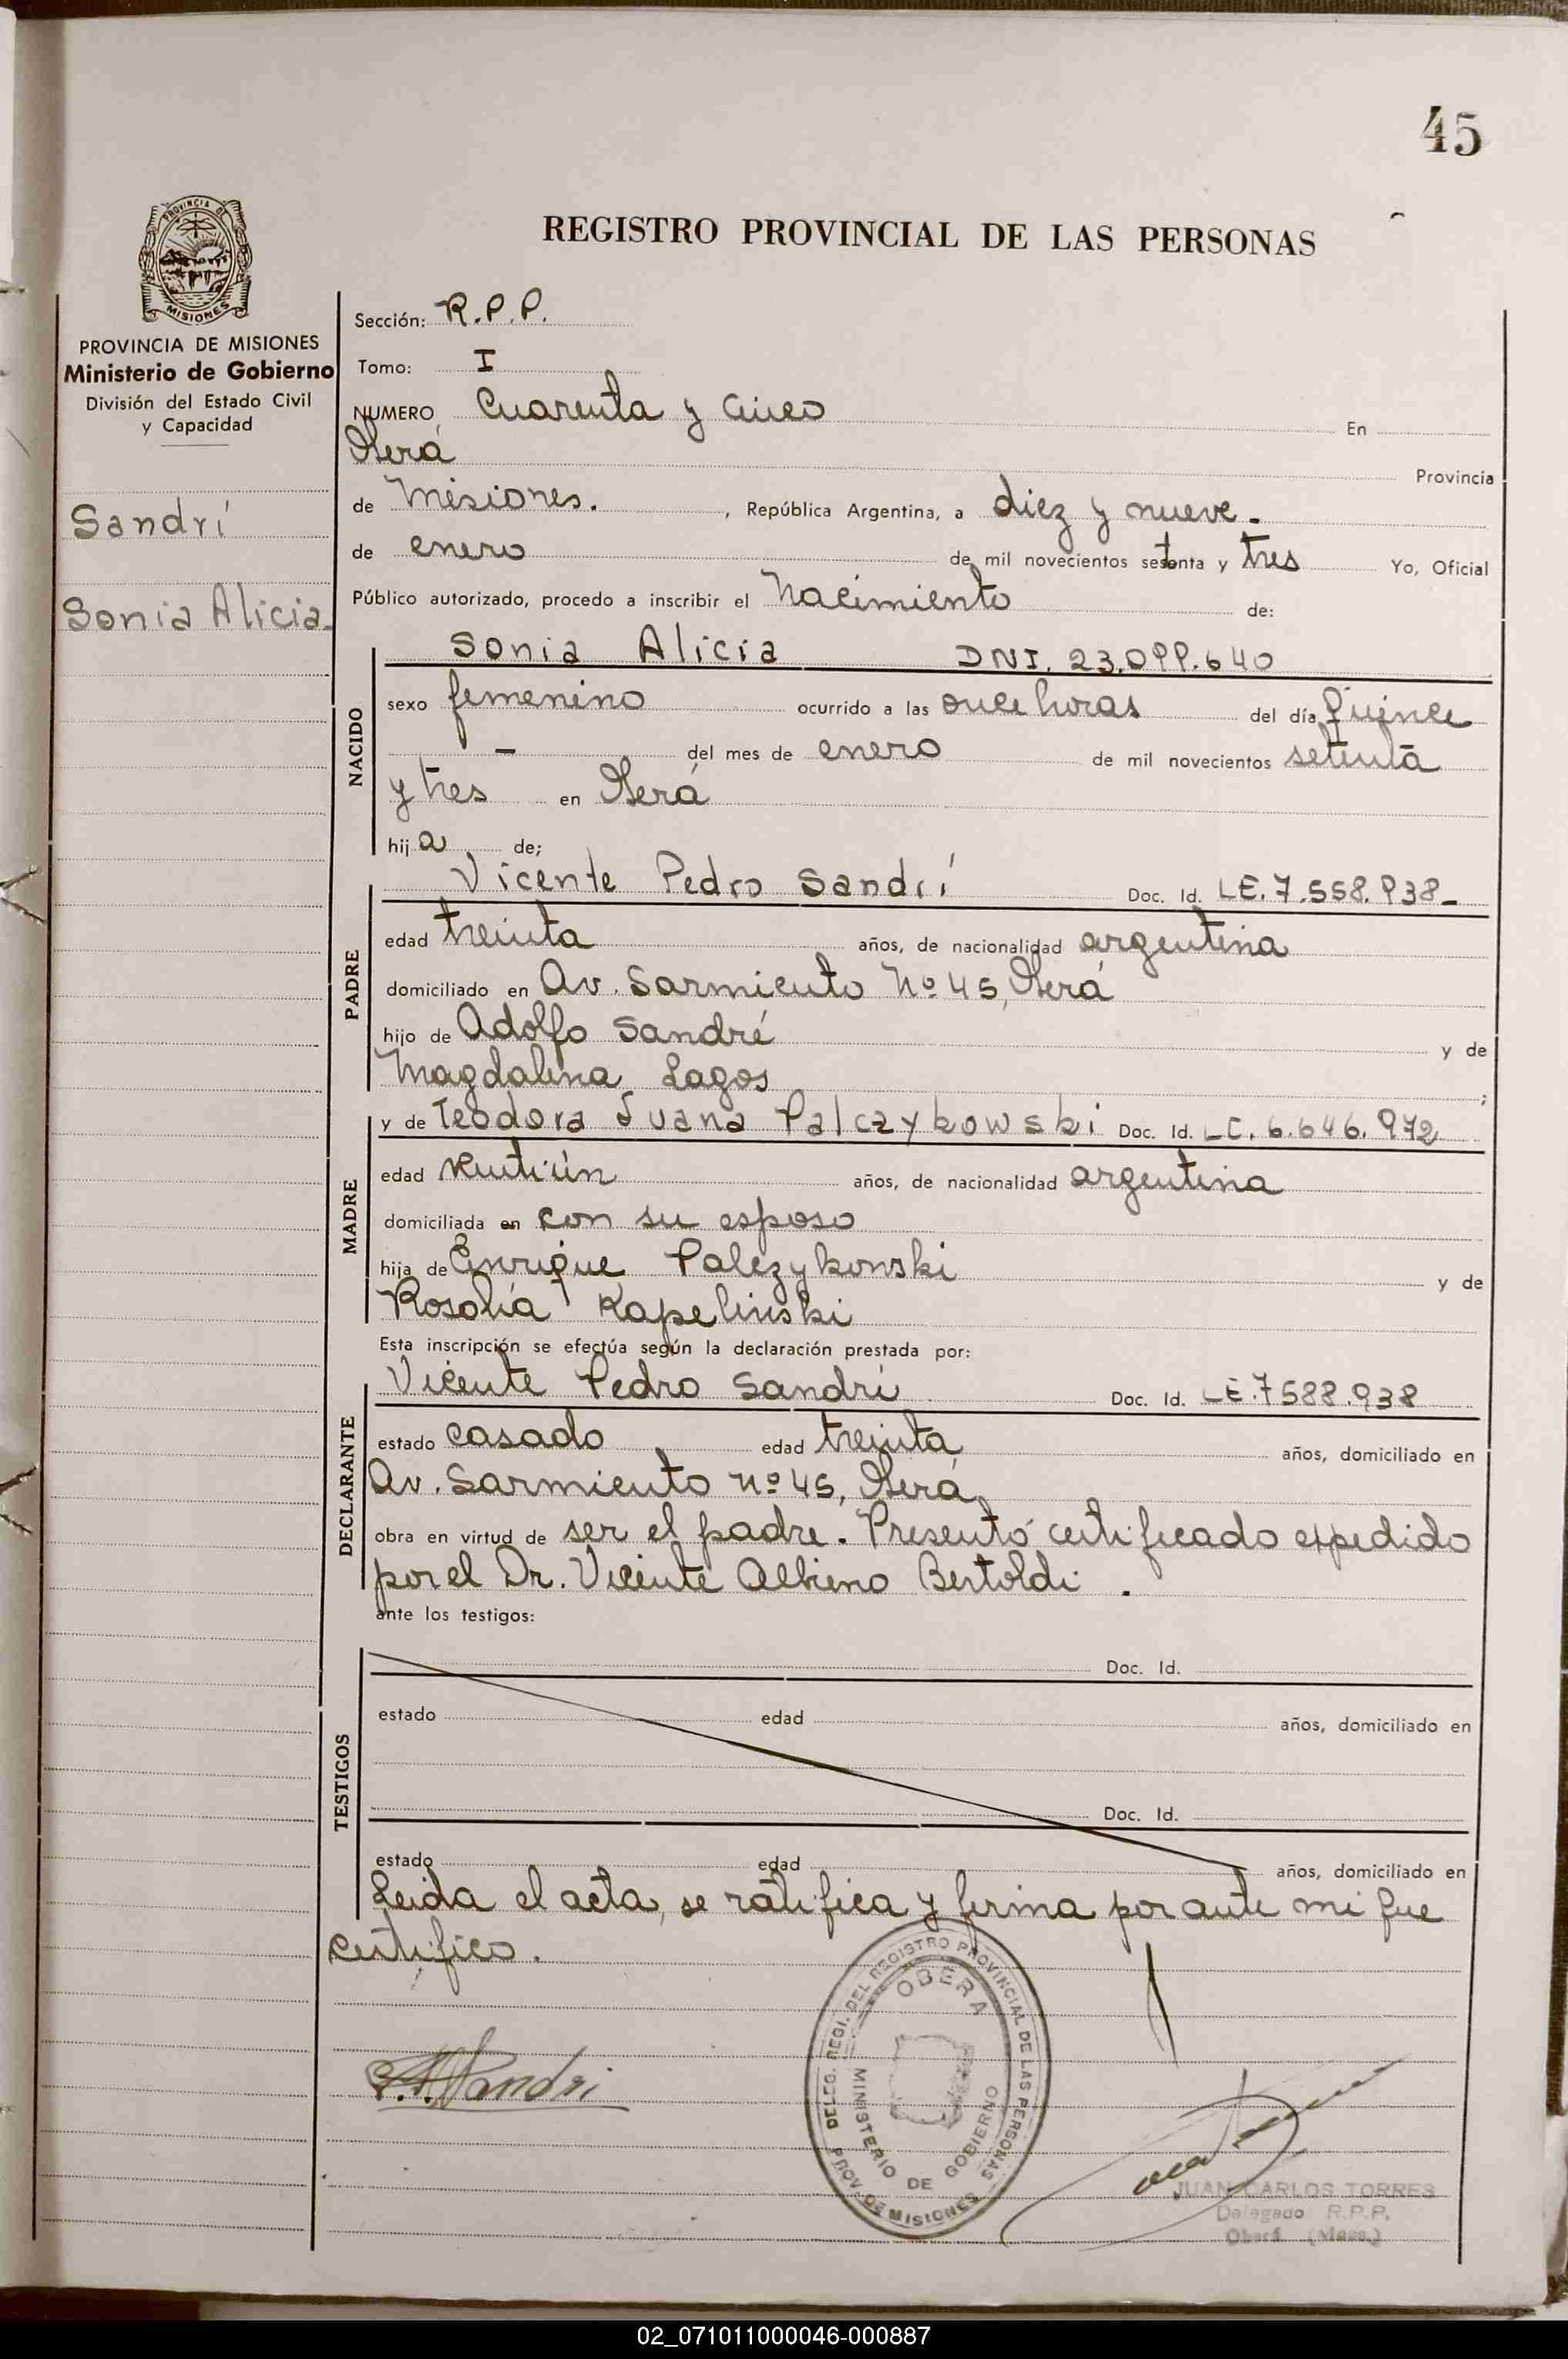 45
REGISTRO PROVINCIAL DE LAS PERSONAS
PROVINCIA DE
MISIONES
PROVINCIA DE MISIONES
Ministerio de Gobierno
División del Estado Civil
y Capacidad
Sandrí
Sonia Alicia.
Sección: R.P.P.
Tomo: I
NUMERO Cuarenta y Cinco En
Oberá Provincia
de Misiones. , República Argentina, a diez y nueve -
de enero de mil novecientos setenta y tres Yo, Oficial
Público autorizado, procedo a inscribir el Nacimiento de:
NACIDO
Sonia Alicia DNI. 23.099.640
sexo femenino ocurrido a las once horas del día quince
- del mes de enero de mil novecientos setenta
y tres en Oberá
hija de;
PADRE
Vicente Pedro Sandrí Doc. Id. LE. 7.558.938-
edad treinta años, de nacionalidad argentina
domiciliado en Av. Sarmiento Nº 45, Oberá
hijo de Adolfo Sandré y de
Magdalena Lagos ;
MADRE
y de Teodora Juana Palczykowski Doc. Id. LC. 6.646.972
edad veintiún años, de nacionalidad argentina
domiciliada en con su esposo
hija de Enrique Palczykowski y de
Rosalía Kapelinski
Esta inscripción se efectúa según la declaración prestada por:
DECLARANTE
Vicente Pedro Sandrí Doc. Id. LE. 7588.938
estado casado edad treinta años, domiciliado en
Av. Sarmiento nº 45, Oberá
obra en virtud de ser el padre. Presentó certificado expedido
por el Dr. Vicente Albino Bertoldi .
ante los testigos:
TESTIGOS
Doc. Id.
estado edad años, domiciliado en
Doc. Id.
estado edad años, domiciliado en
Leida el acta, se ratifica y firma por ante mi que
certifico.
DELEG. REGI. DEL REGISTRO PROVINCIAL DE LAS PERSONAS
OBERA
MINISTERIO DE GOBIERNO
PROV. DE MISIONES
Sandri
JUAN CARLOS TORRES
Delegado R.P.P.
Oberá (Mnes.)
02_071011000046-000887